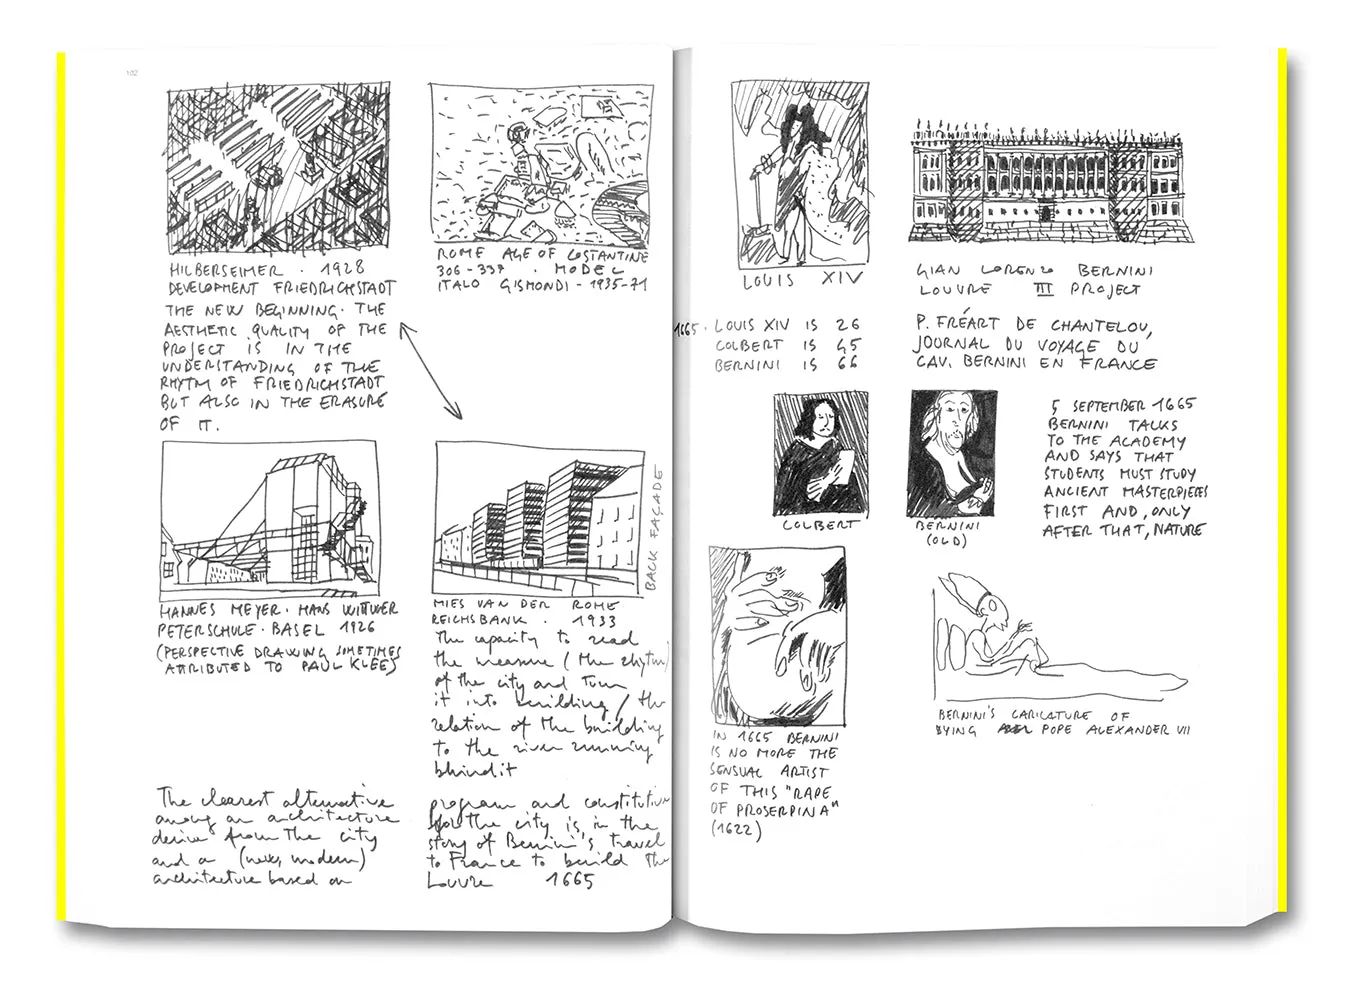 102
HILBERSEIMER · 1928
DEVELOPMENT FRIEDRICHSTADT
THE NEW BEGINNING. THE
AESTHETIC QUALITY OF THE
PROJECT IS IN THE
UNDERSTANDING OF THE
RHYTM OF FRIEDRICHSTADT
BUT ALSO IN THE ERASURE
OF IT.
HANNES MEYER · HANS WITTWER
PETERSCHULE · BASEL 1926
(PERSPECTIVE DRAWING SOMETIMES
ATTRIBUTED TO PAUL KLEE)
The clearest alternative
among an architecture
derive from the city
and a (new, modern)
architecture based on
ROME AGE OF COSTANTINE
306-337 · MODEL
ITALO GISMONDI - 1935-71
BACK FAÇADE
MIES VAN DER ROHE
REICHSBANK · 1933
The capacity to read
the measure (the rhythm)
of the city and turn
it into building / the
relation of the building
to the river running
behind it
program and constitution
for the city is in the
story of Bernini's travel
to France to build the
Louvre 1665
LOUIS XIV
1665 · LOUIS XIV IS 26
COLBERT IS 45
BERNINI IS 66
COLBERT
BERNINI
(OLD)
IN 1665 BERNINI
IS NO MORE THE
SENSUAL ARTIST
OF THIS "RAPE
OF PROSERPINA"
(1622)
GIAN LORENZO BERNINI
LOUVRE III PROJECT
P. FRÉART DE CHANTELOU,
JOURNAL DU VOYAGE DU
CAV. BERNINI EN FRANCE
5 SEPTEMBER 1665
BERNINI TALKS
TO THE ACADEMY
AND SAYS THAT
STUDENTS MUST STUDY
ANCIENT MASTERPIECES
FIRST AND, ONLY
AFTER THAT, NATURE
BERNINI'S CARICATURE OF
DYING POPE ALEXANDER VII